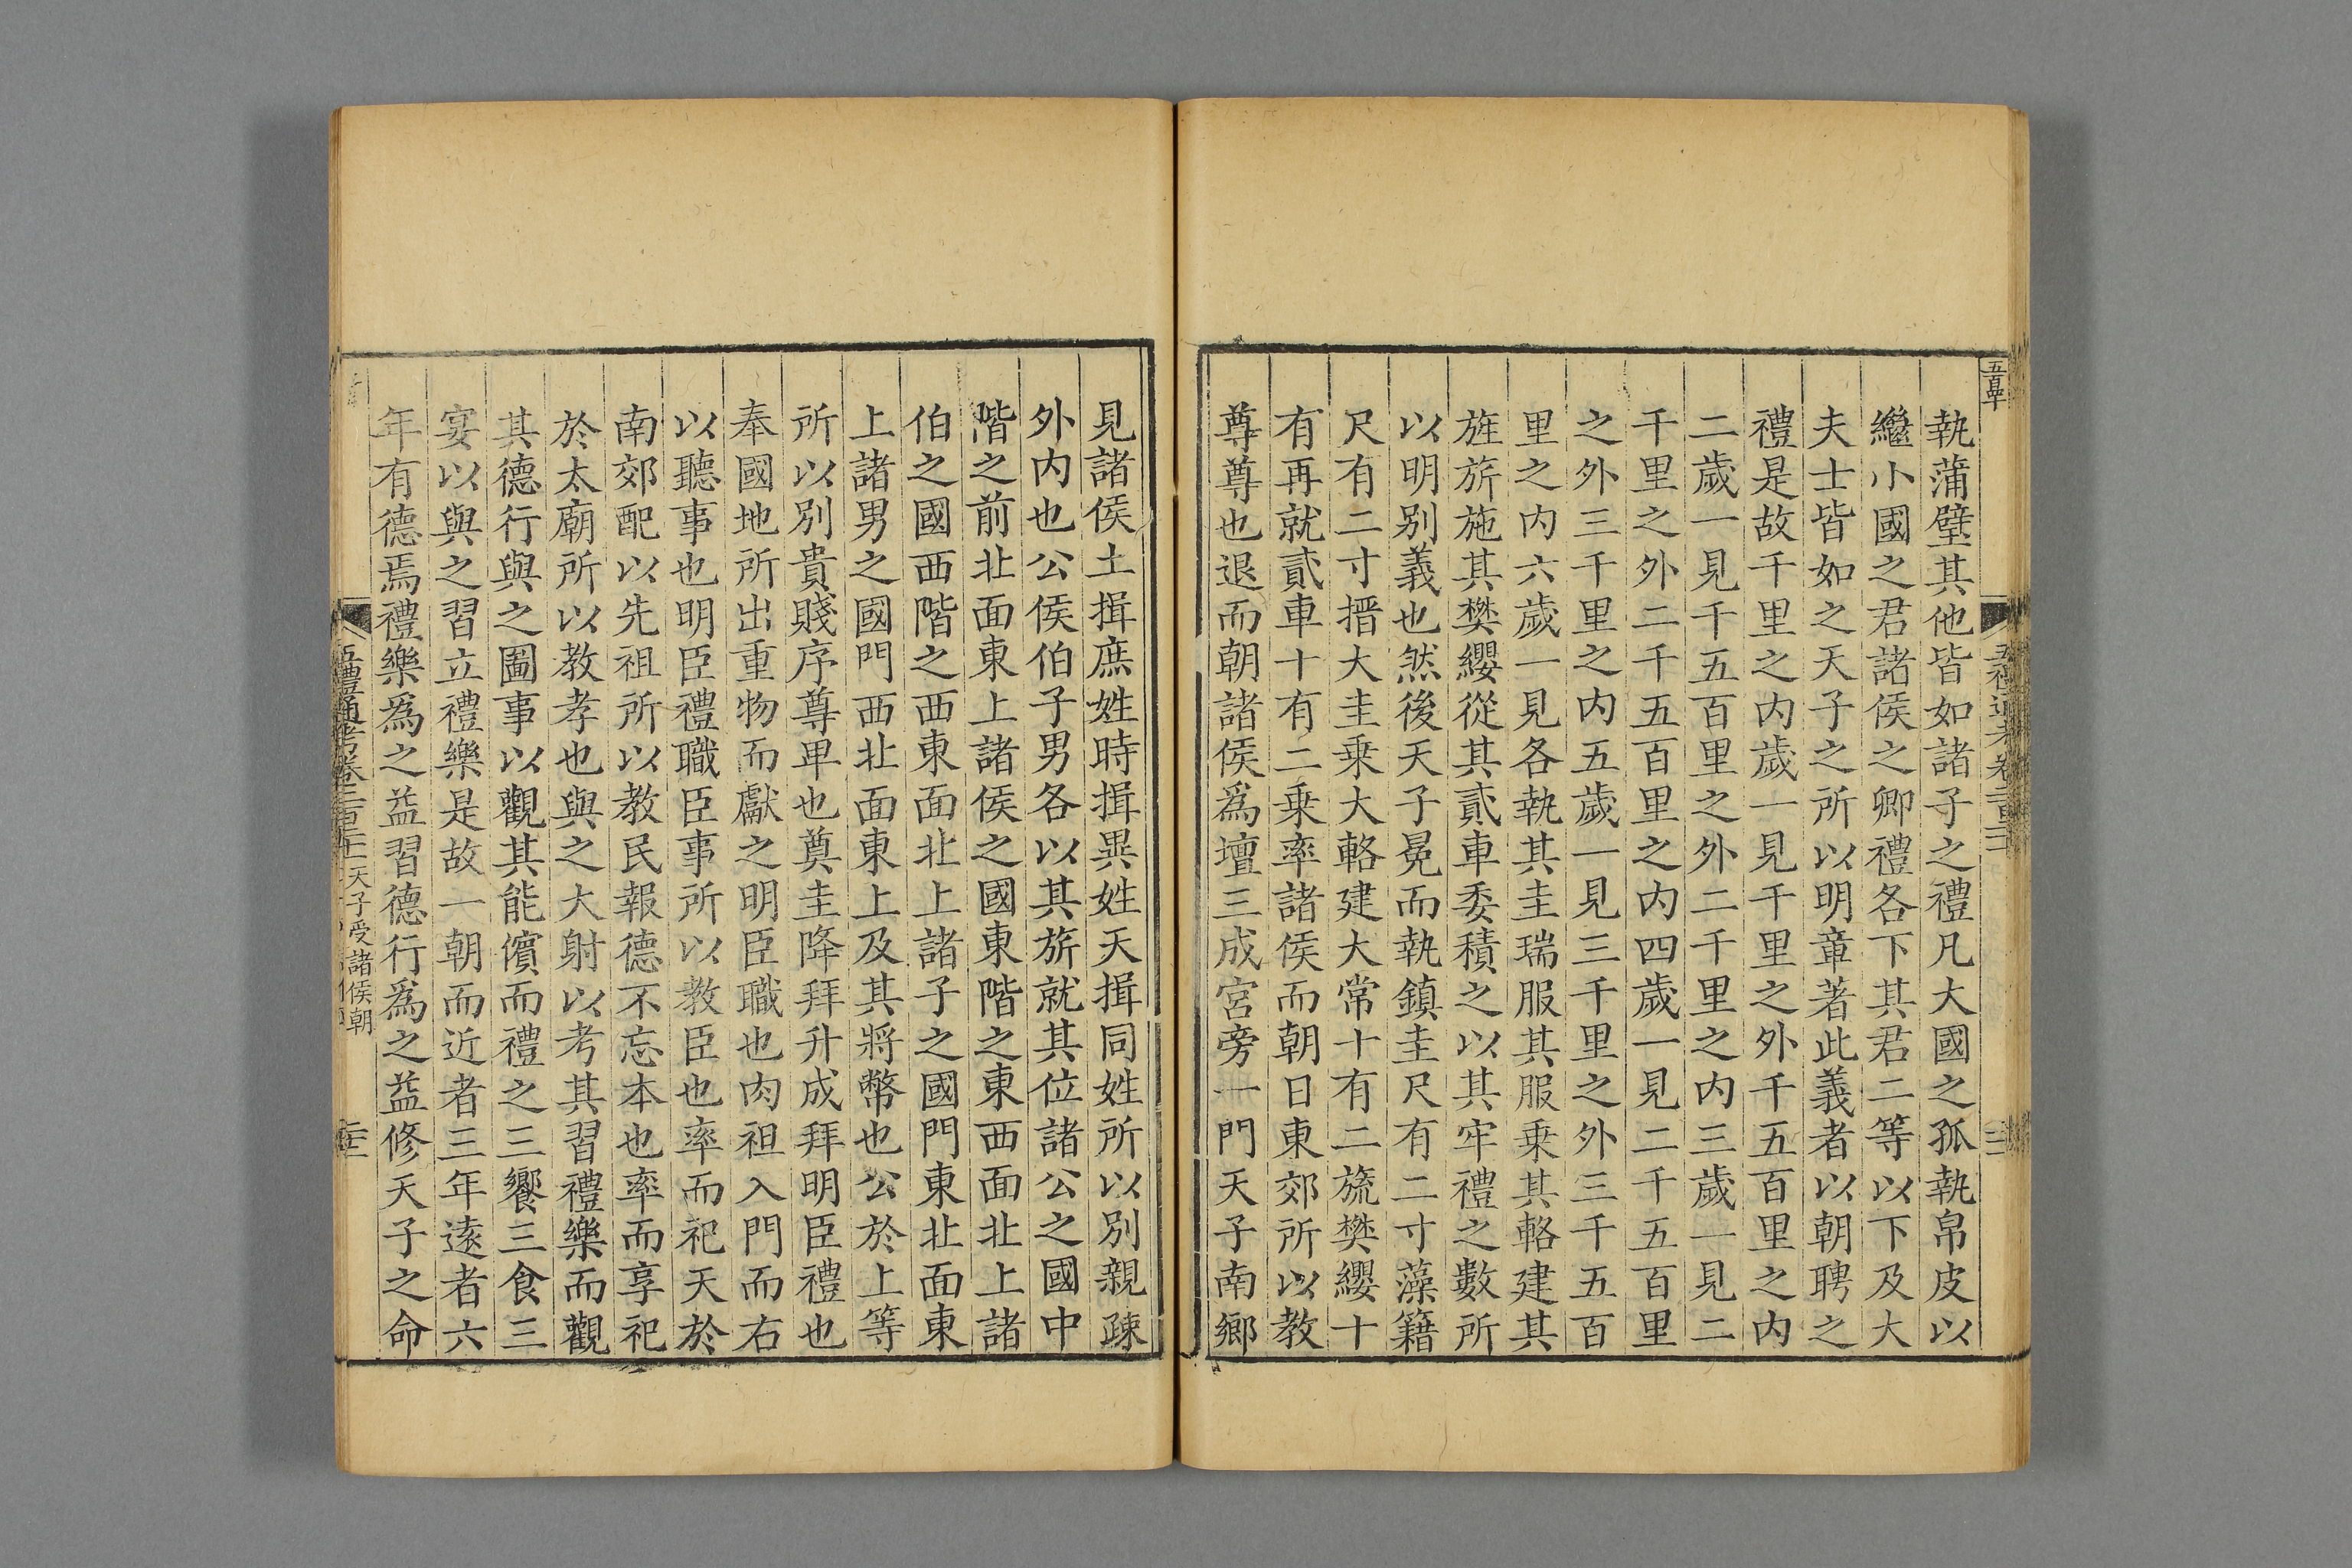 執蒲璧其他皆如諸子之禮凡大國之孤執帛皮以
繼小國之君諸侯之卿禮各下其君二等以下及大
夫士皆如之天子之所以明章著此義者以朝聘之
禮是故千里之內歲一見千里之外千五百里之內
二歲一見千五百里之外二千里之內三歲一見二
千里之外二千五百里之內四歲一見二千五百里
之外三千里之內五歲一見三千里之外三千五百
里之內六歲一見各執其圭瑞服其服乘其輅建其
旌旂施其樊纓從其貳車委積之以其牢禮之數所
以明別義也然後天子冕而執鎮圭尺有二寸藻籍
尺有二寸搢大圭乗大輅建大常十有二旒樊纓十
有再就貳車十有二乗率諸侯而朝日東郊所以教
尊尊也退而朝諸侯爲壇三成宮旁一門天子南鄉
見諸侯土揖庶姓時揖異姓天揖同姓所以別親疎
外內也公侯伯子男各以其旂就其位諸公之國中
階之前北面東上諸侯之國東階之東西面北上諸
伯之國西階之西東面北上諸子之國門東北面東
上諸男之國門西北面東上及其將幣也公於上等
所以別貴賤序尊卑也奠圭降拜升成拜明臣禮也
奉國地所出重物而獻之明臣職也肉袒入門而右
以聽事也明臣禮職臣事所以教臣也率而祀天於
南郊配以先祖所以教民報德不忘本也率而享祀
於太廟所以教孝也與之大射以考其習禮樂而觀
其德行與之圖事以觀其能儐而禮之三饗三食三
宴以與之習立禮樂是故一朝而近者三年遠者六
年有德焉禮樂爲之益習德行爲之益修天子之命
五禮通考卷二百二十二 天子受諸侯朝